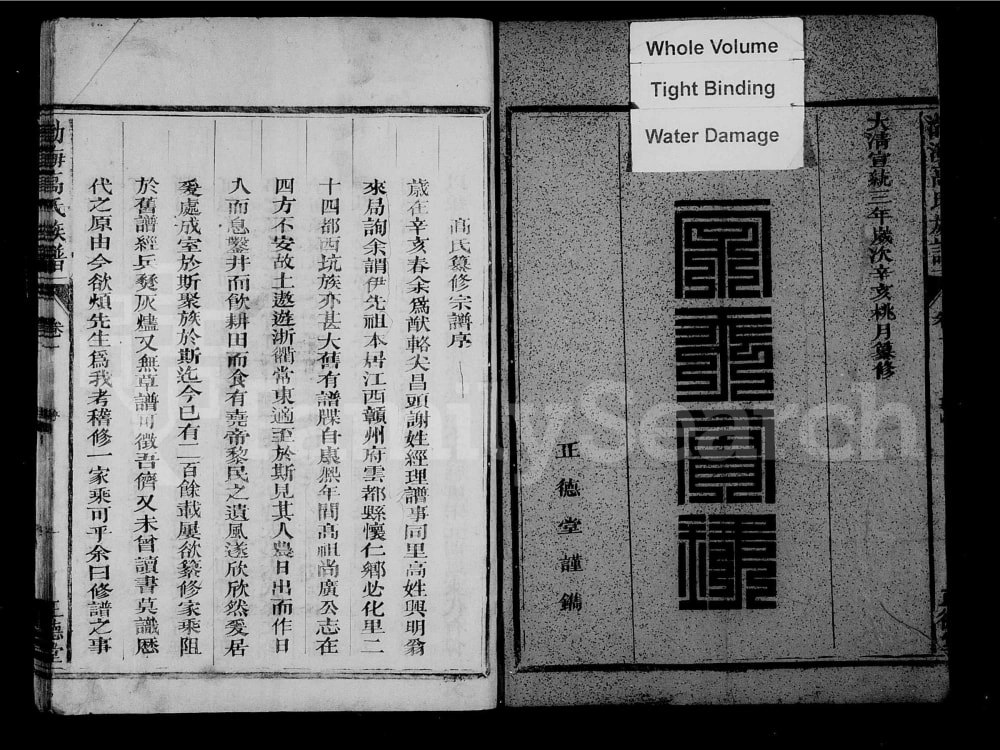 Whole Volume
Tight Binding
Water Damage
大清宣統三年歲次辛亥桃月纂修
正德堂謹鐫
高氏纂修宗譜序
歲在辛亥春余爲猷輅尖昌頭謝姓經理譜事同里高姓興明翁
來局詢余謂伊先祖本居江西贛州府雲都縣懷仁鄉必化里二
十四都西坑族亦甚大舊有譜牒自康熙年間高祖尚廣公志在
四方不安故土遨遊浙衢常東適至於斯見其人農日出而作日
入而息鑿井而飲耕田而食有堯帝黎民之遺風遂欣欣然爰居
爰處成室於斯聚族於斯迄今已有二百餘載屢欲纂修家乘阻
於舊譜經兵燹灰燼又無草譜可徵吾儕又未曾讀書莫識歷
代之原由今欲煩先生爲我考稽修一家乘可乎余曰修譜之事
渤海高氏族譜
卷一
正德堂
FamilySearch